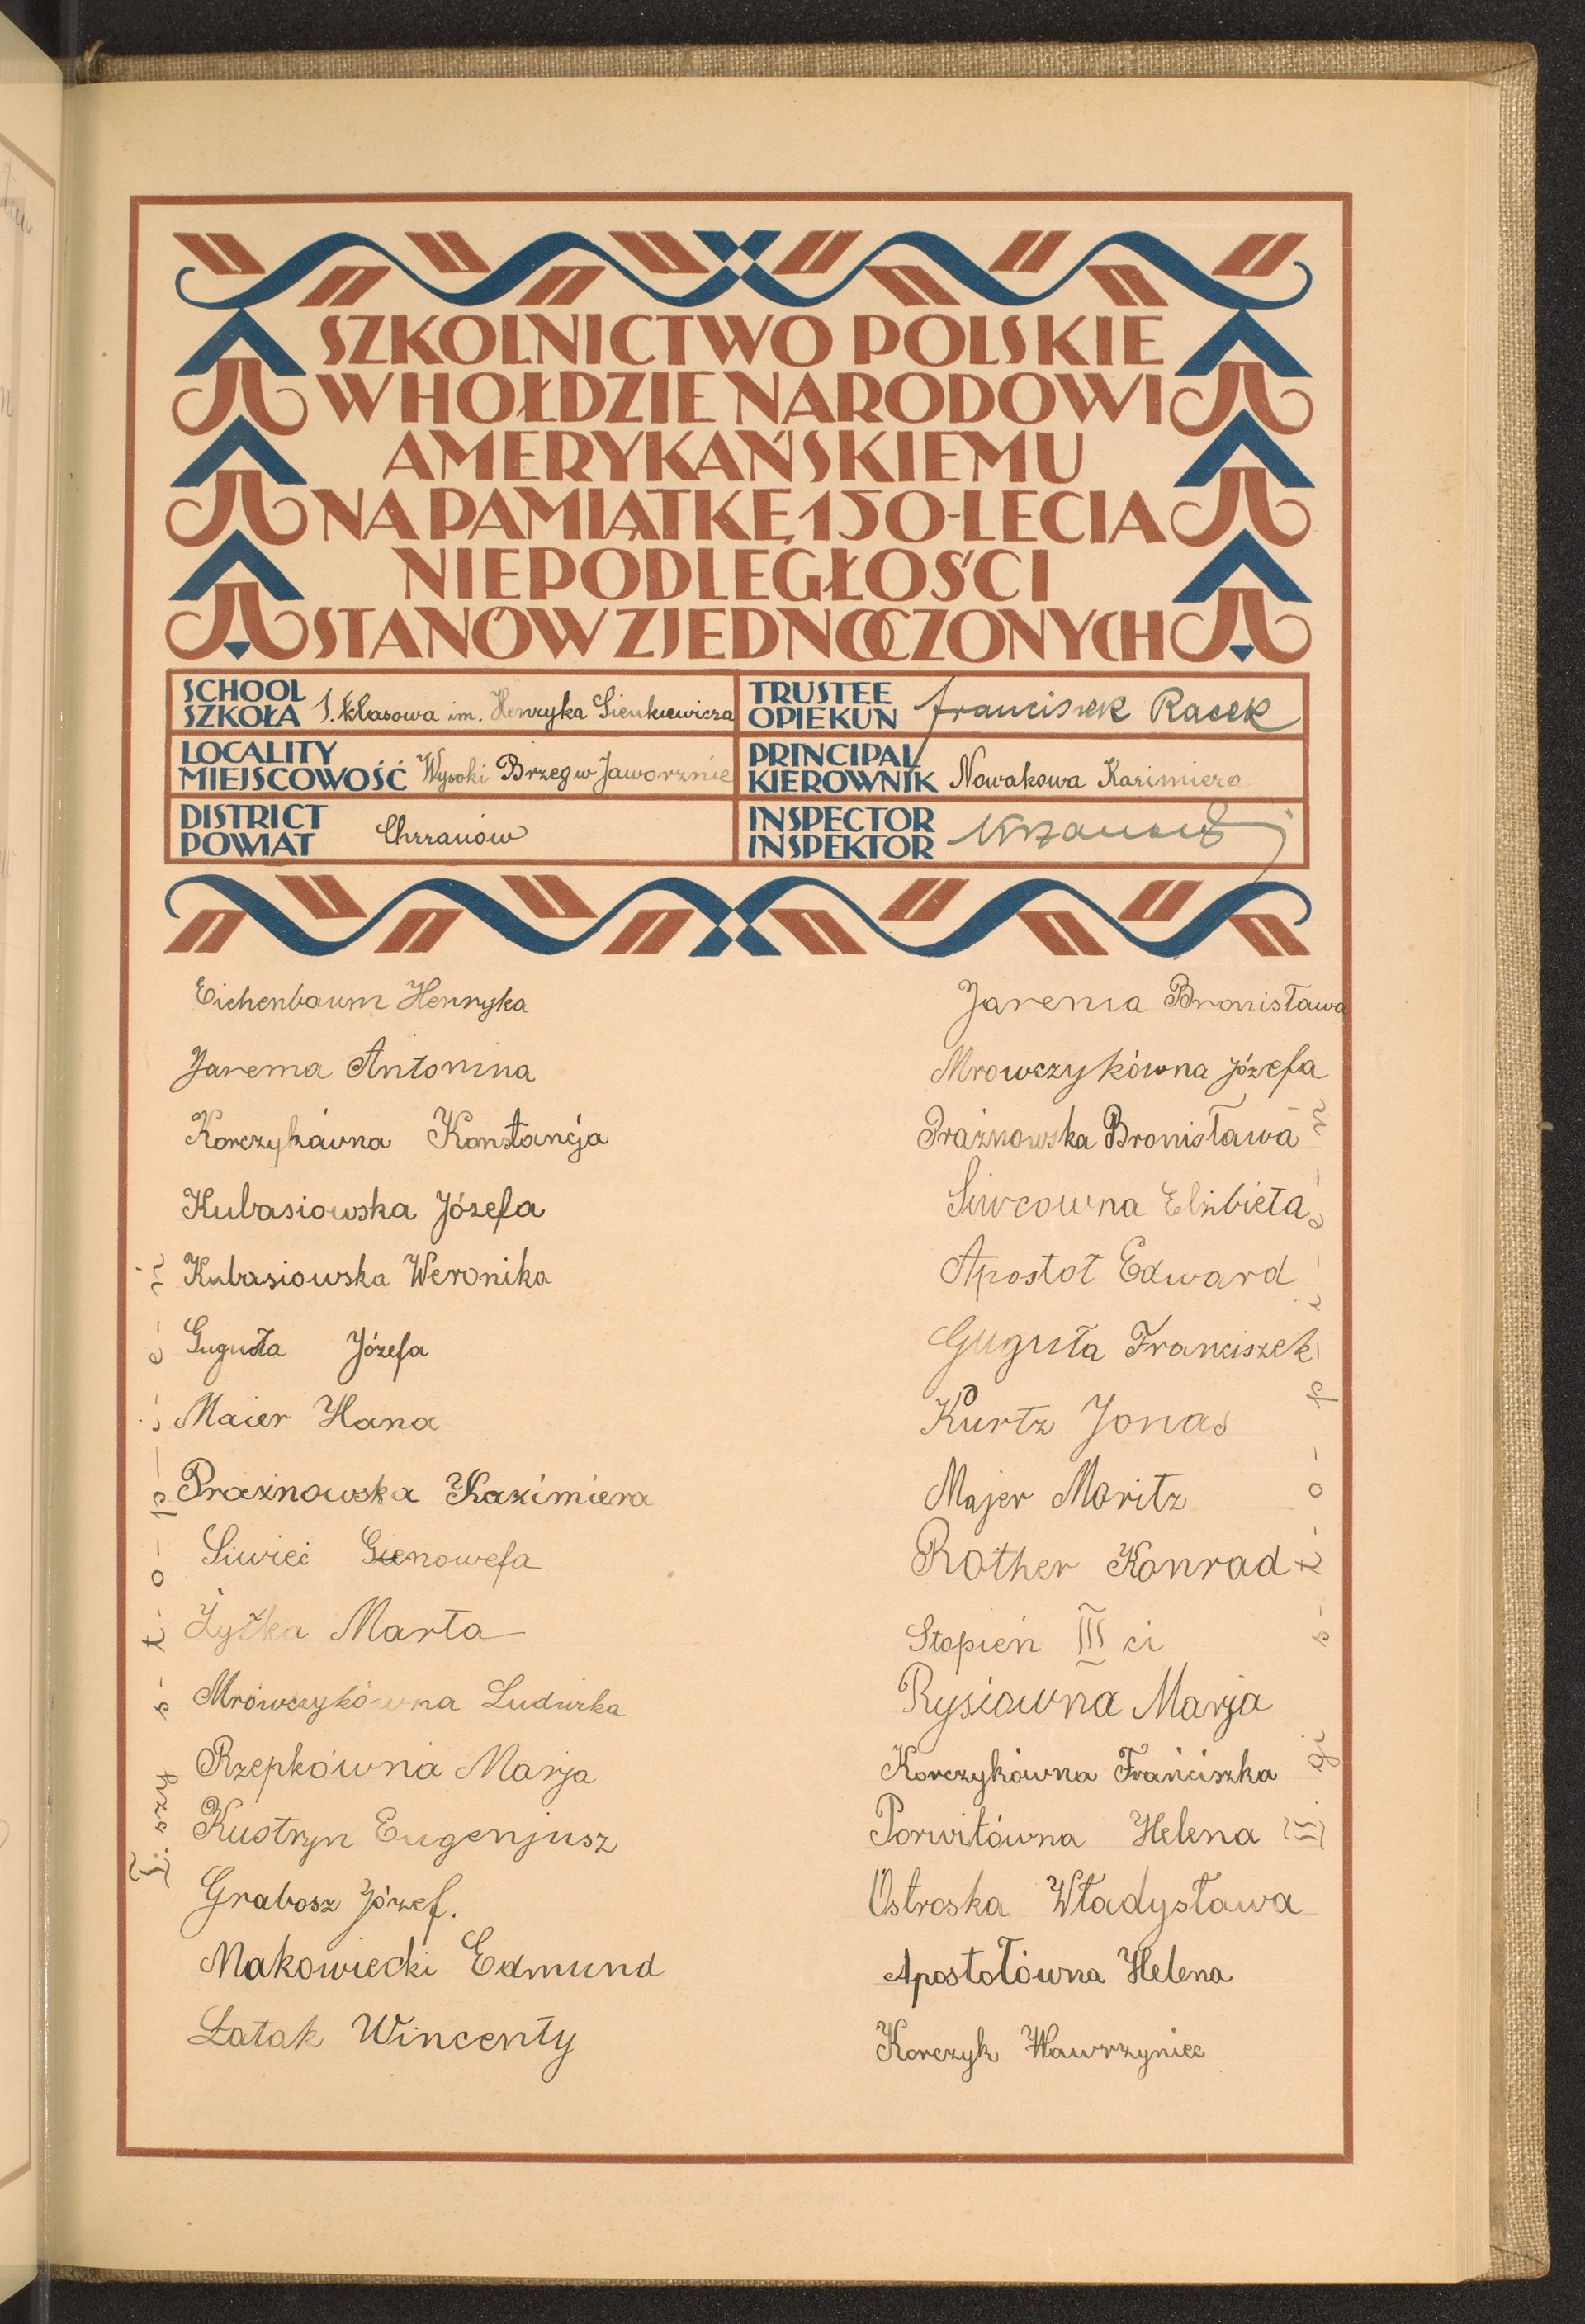 SZKOLNICTWO POLSKIE
W HOŁDZIE NARODOWI
AMERYKAŃSKIEMU
NA PAMIĄTKĘ 150-LECIA
NIEPODLEGŁOŚCI
STANÓW ZJEDNOCZONYCH
SCHOOL
SZKOŁA klasowa im. Henryka Sienkiewicza
TRUSTEE
OPIEKUN Franciszek Racek
LOCALITY
MIEJSCOWOŚĆ Wysoki Brzeg w Jaworznie
PRINCIPAL
KIEROWNIK Nowakowa Kazimiera
DISTRICT
POWIAT Chrzanów
INSPECTOR
INSPEKTOR
Eichenbaum Henryka
Jarema Antonina
Korczykówna Konstancja
Kubasiowska Józefa
Kubasiowska Weronika
Guguła Józefa
Maier Hana
Praźnowska Kazimiera
Siwieć Gienowefa
Żytka Marta
Mrówczykówna Ludwika
Rzepkówna Marja
Kustryn Eugenjusz
Grabosz Józef.
Makowiecki Edmund
Łatak Wincenty
I. szy s-t-o-p-i-e-ń
Jarema Bronisława
Mrowczykówna Józefa
Praźnowska Bronisława
Siwcowna Elżbieta
Apostoł Edward
Guguła Franciszek
Kurtz Jonas
Majer Moritz
Rother Konrad
Stopień III ci
Rysiowna Marja
Korczykówna Franciszka
Porwitówna Helena
Ostroska Władysława
Apostołówna Helena
Korczyk Wawrzyniec
II. gi s-t-o-p-i-e-ń